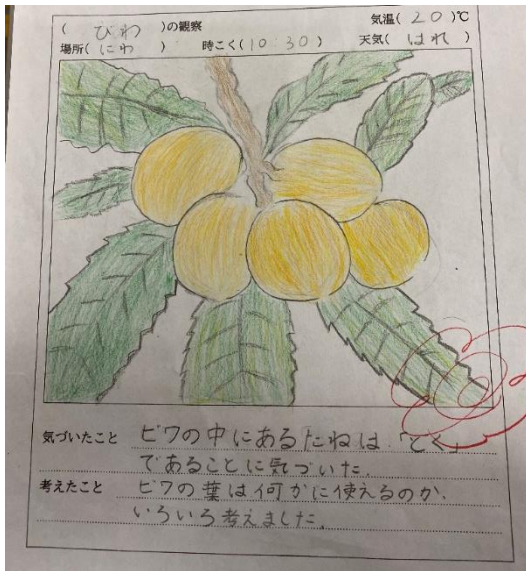 ( びわ )の観察 気温( 20 )℃
場所( にわ ) 時こく( 10:30 ) 天気( はれ )
気づいたこと ビワの中にあるたねは、「どく」
であることに気づいた。
考えたこと ビワの葉は何かに使えるのか、
いろいろ考えました。